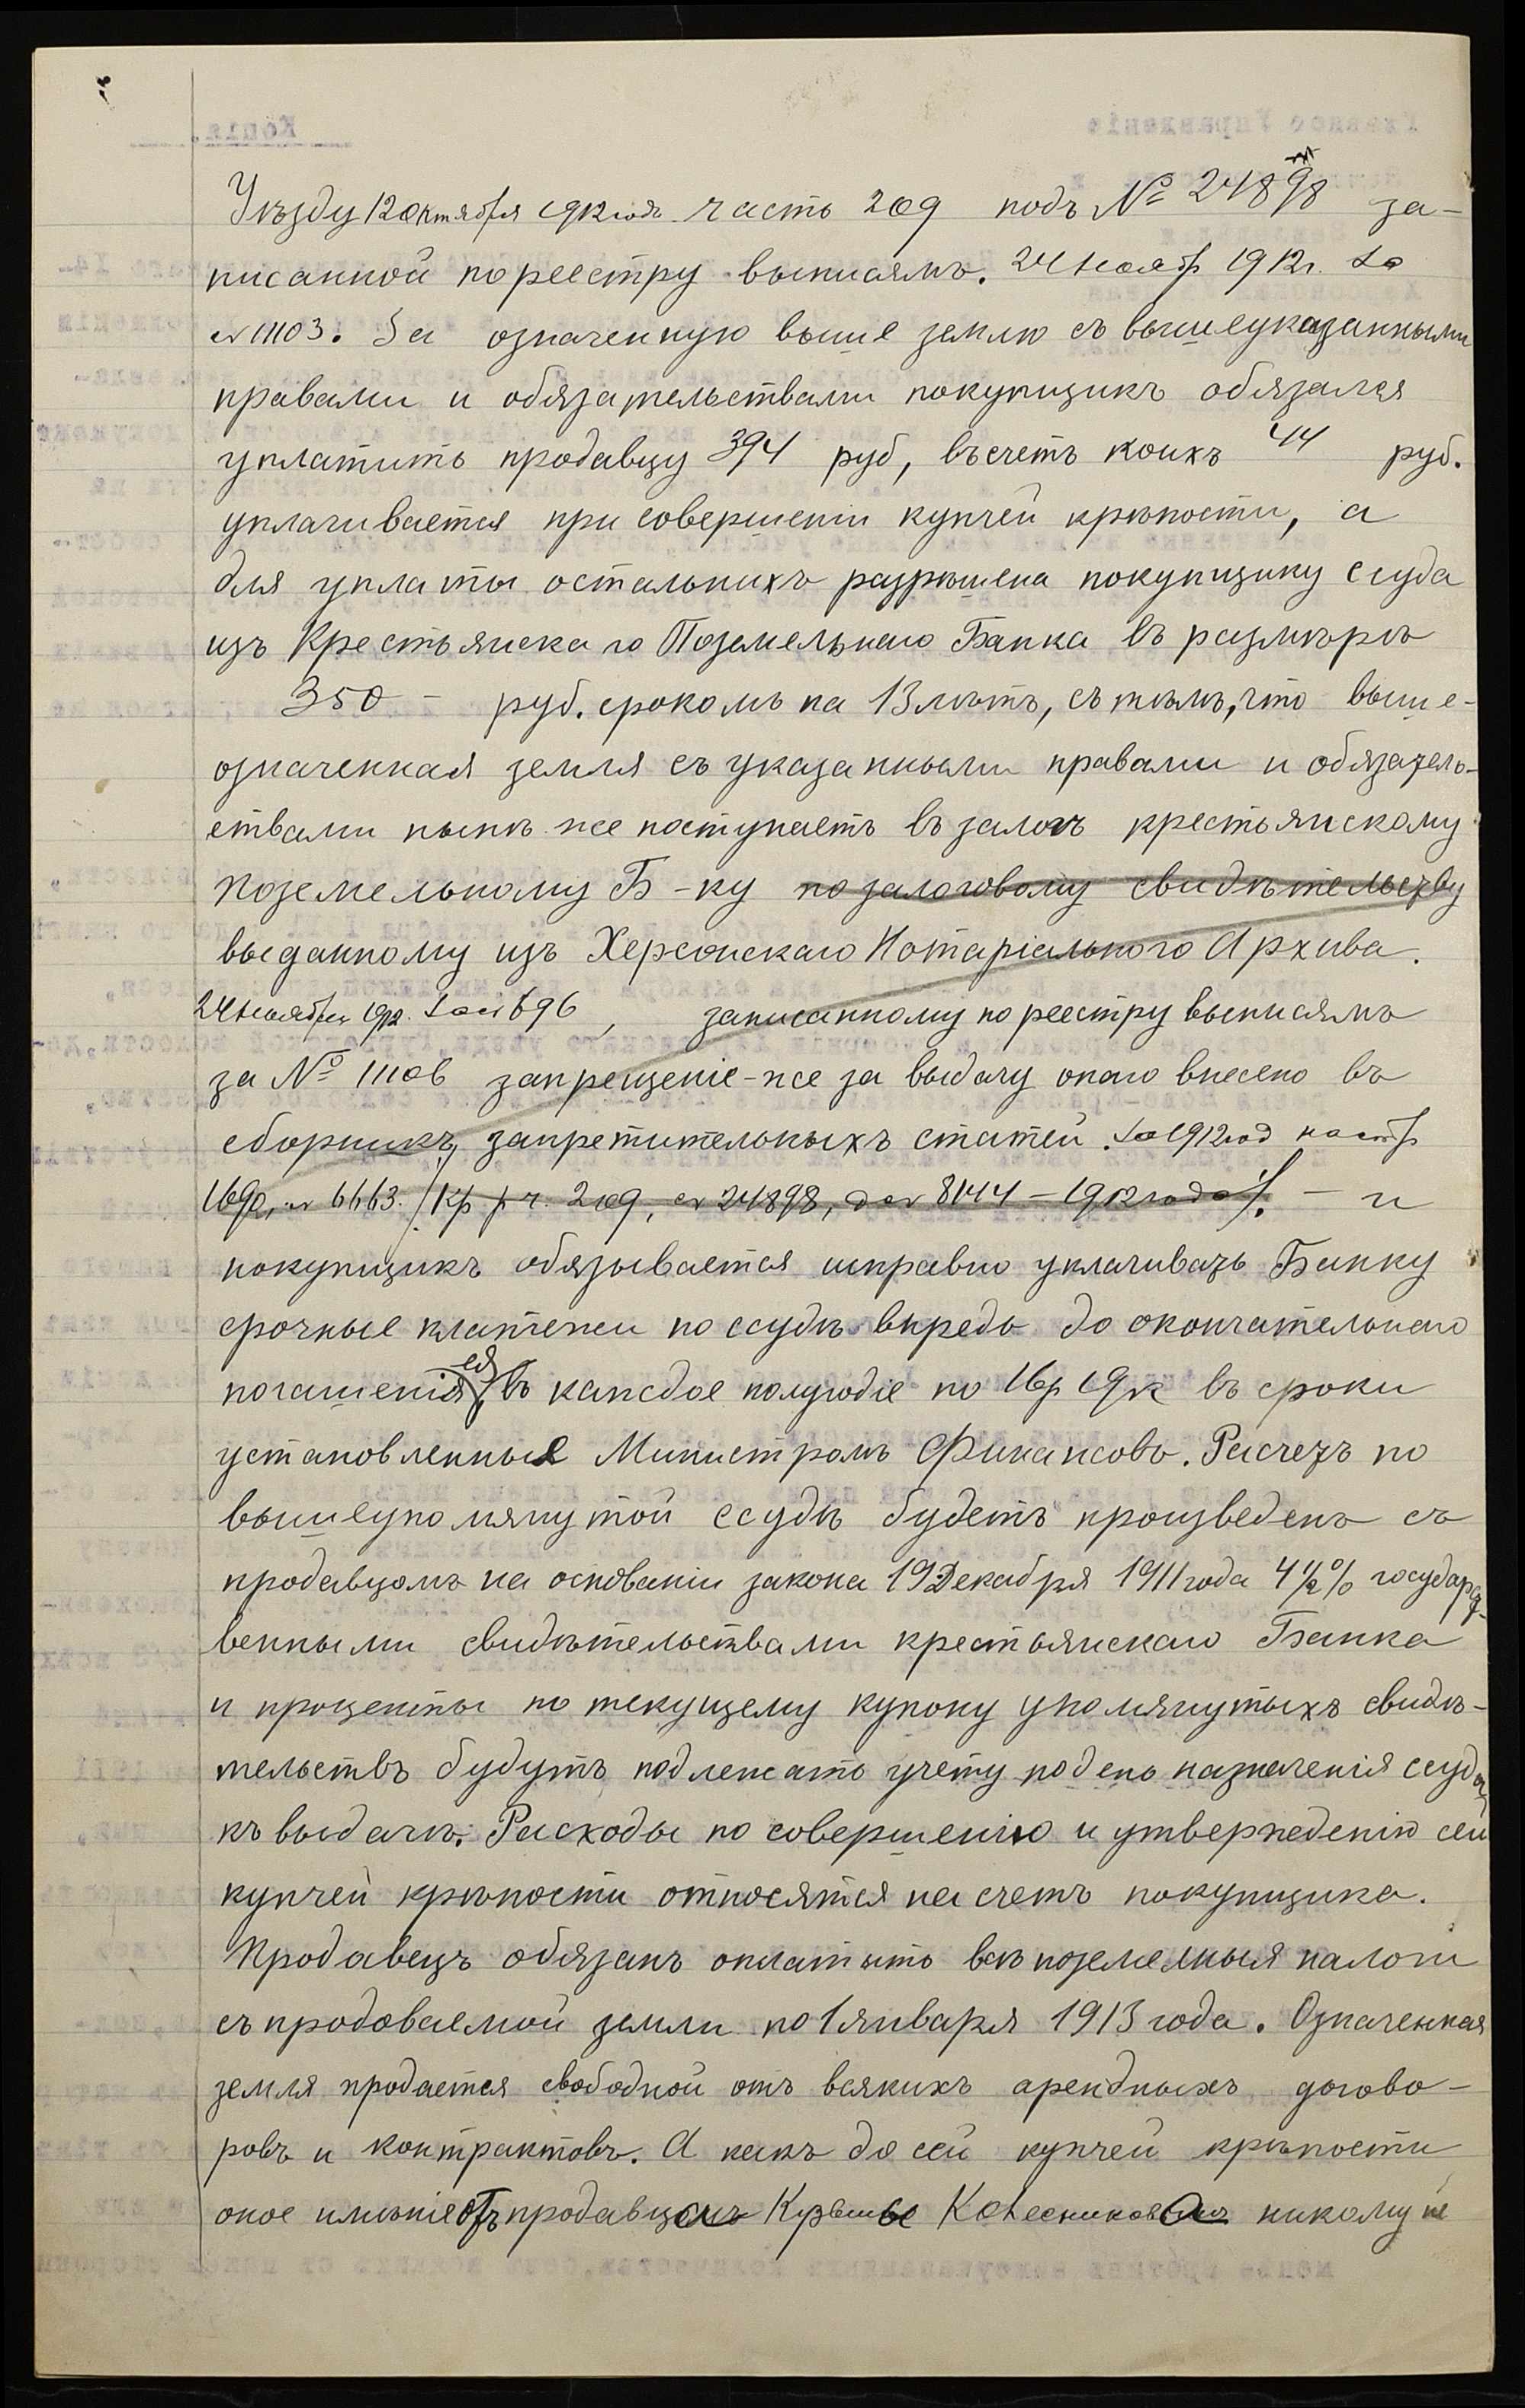 Уѣзду 12 октября 1912 года часть 209 подъ № 24898 за-
писанной по реестру выписямъ. 24 нояб 1912г. за
№ 11103. За означенную выше землю съ вышеуказанными
правами и обязательствами покупщикъ обязался
уплатить продавцу 394 руб, въ счетъ коихъ 44 руб.
уплачивается при совершеніи купчей крѣпости, а
для уплаты остальныхъ разрѣшена покупщику ссуда
изъ Крестьянскаго Поземельнаго Банка въ размѣрѣ
350 – руб. срокомъ на 13 лѣтъ, съ тѣмъ, что выше-
означенная земля съ указанными правами и обязатель-
ствами нынѣ же поступаетъ въ залогъ крестьянскому
Поземельному Б-ку по залоговому свидѣтельству
выданному изъ Херсонскаго Нотаріальнаго Архива.
24 ноября 1912. за № 696, записанному по реестру выписямъ
за № 11106 запрещеніе-же за выдачу онаго внесено въ
сборникъ запретительныхъ статей. за 1912 год на стр
1690, № 6663. /Кр р ч. 209, № 24898, д № 8144 – 1912 года/. – и
покупщикъ обязывается исправно уплачивать Банку
срочные платежи по ссудѣ впредь до окончательнаго
погашенія ея, въ каждое полугодіе по 16р 19к въ сроки
установленные Министромъ Финансовъ. Расчетъ по
вышеупомянутой ссудѣ будетъ произведенъ съ
продавцомъ на основаніи закона 19 Декабря 1911 года 4½% государст-
венными свидѣтельствами крестьянскаго Банка
и проценты по текущему купону упомянутыхъ свидѣ-
тельствъ будутъ подлежать учету по день назначенія ссуды
къ выдачѣ. Расходы по совершенію и утвержденію сей
купчей крѣпости относятся на счетъ покупщика.
Продавецъ обязанъ оплатыть всѣ поземельныя налоги
съ продоваемой земли по 1 января 1913 года. Означенная
земля продается свободной отъ всякихъ арендныхъ догово-
ровъ и контрактовъ. А какъ до сей купчей крѣпости
оное имѣніе отъ продавца Кузьмы Колесникова никому не